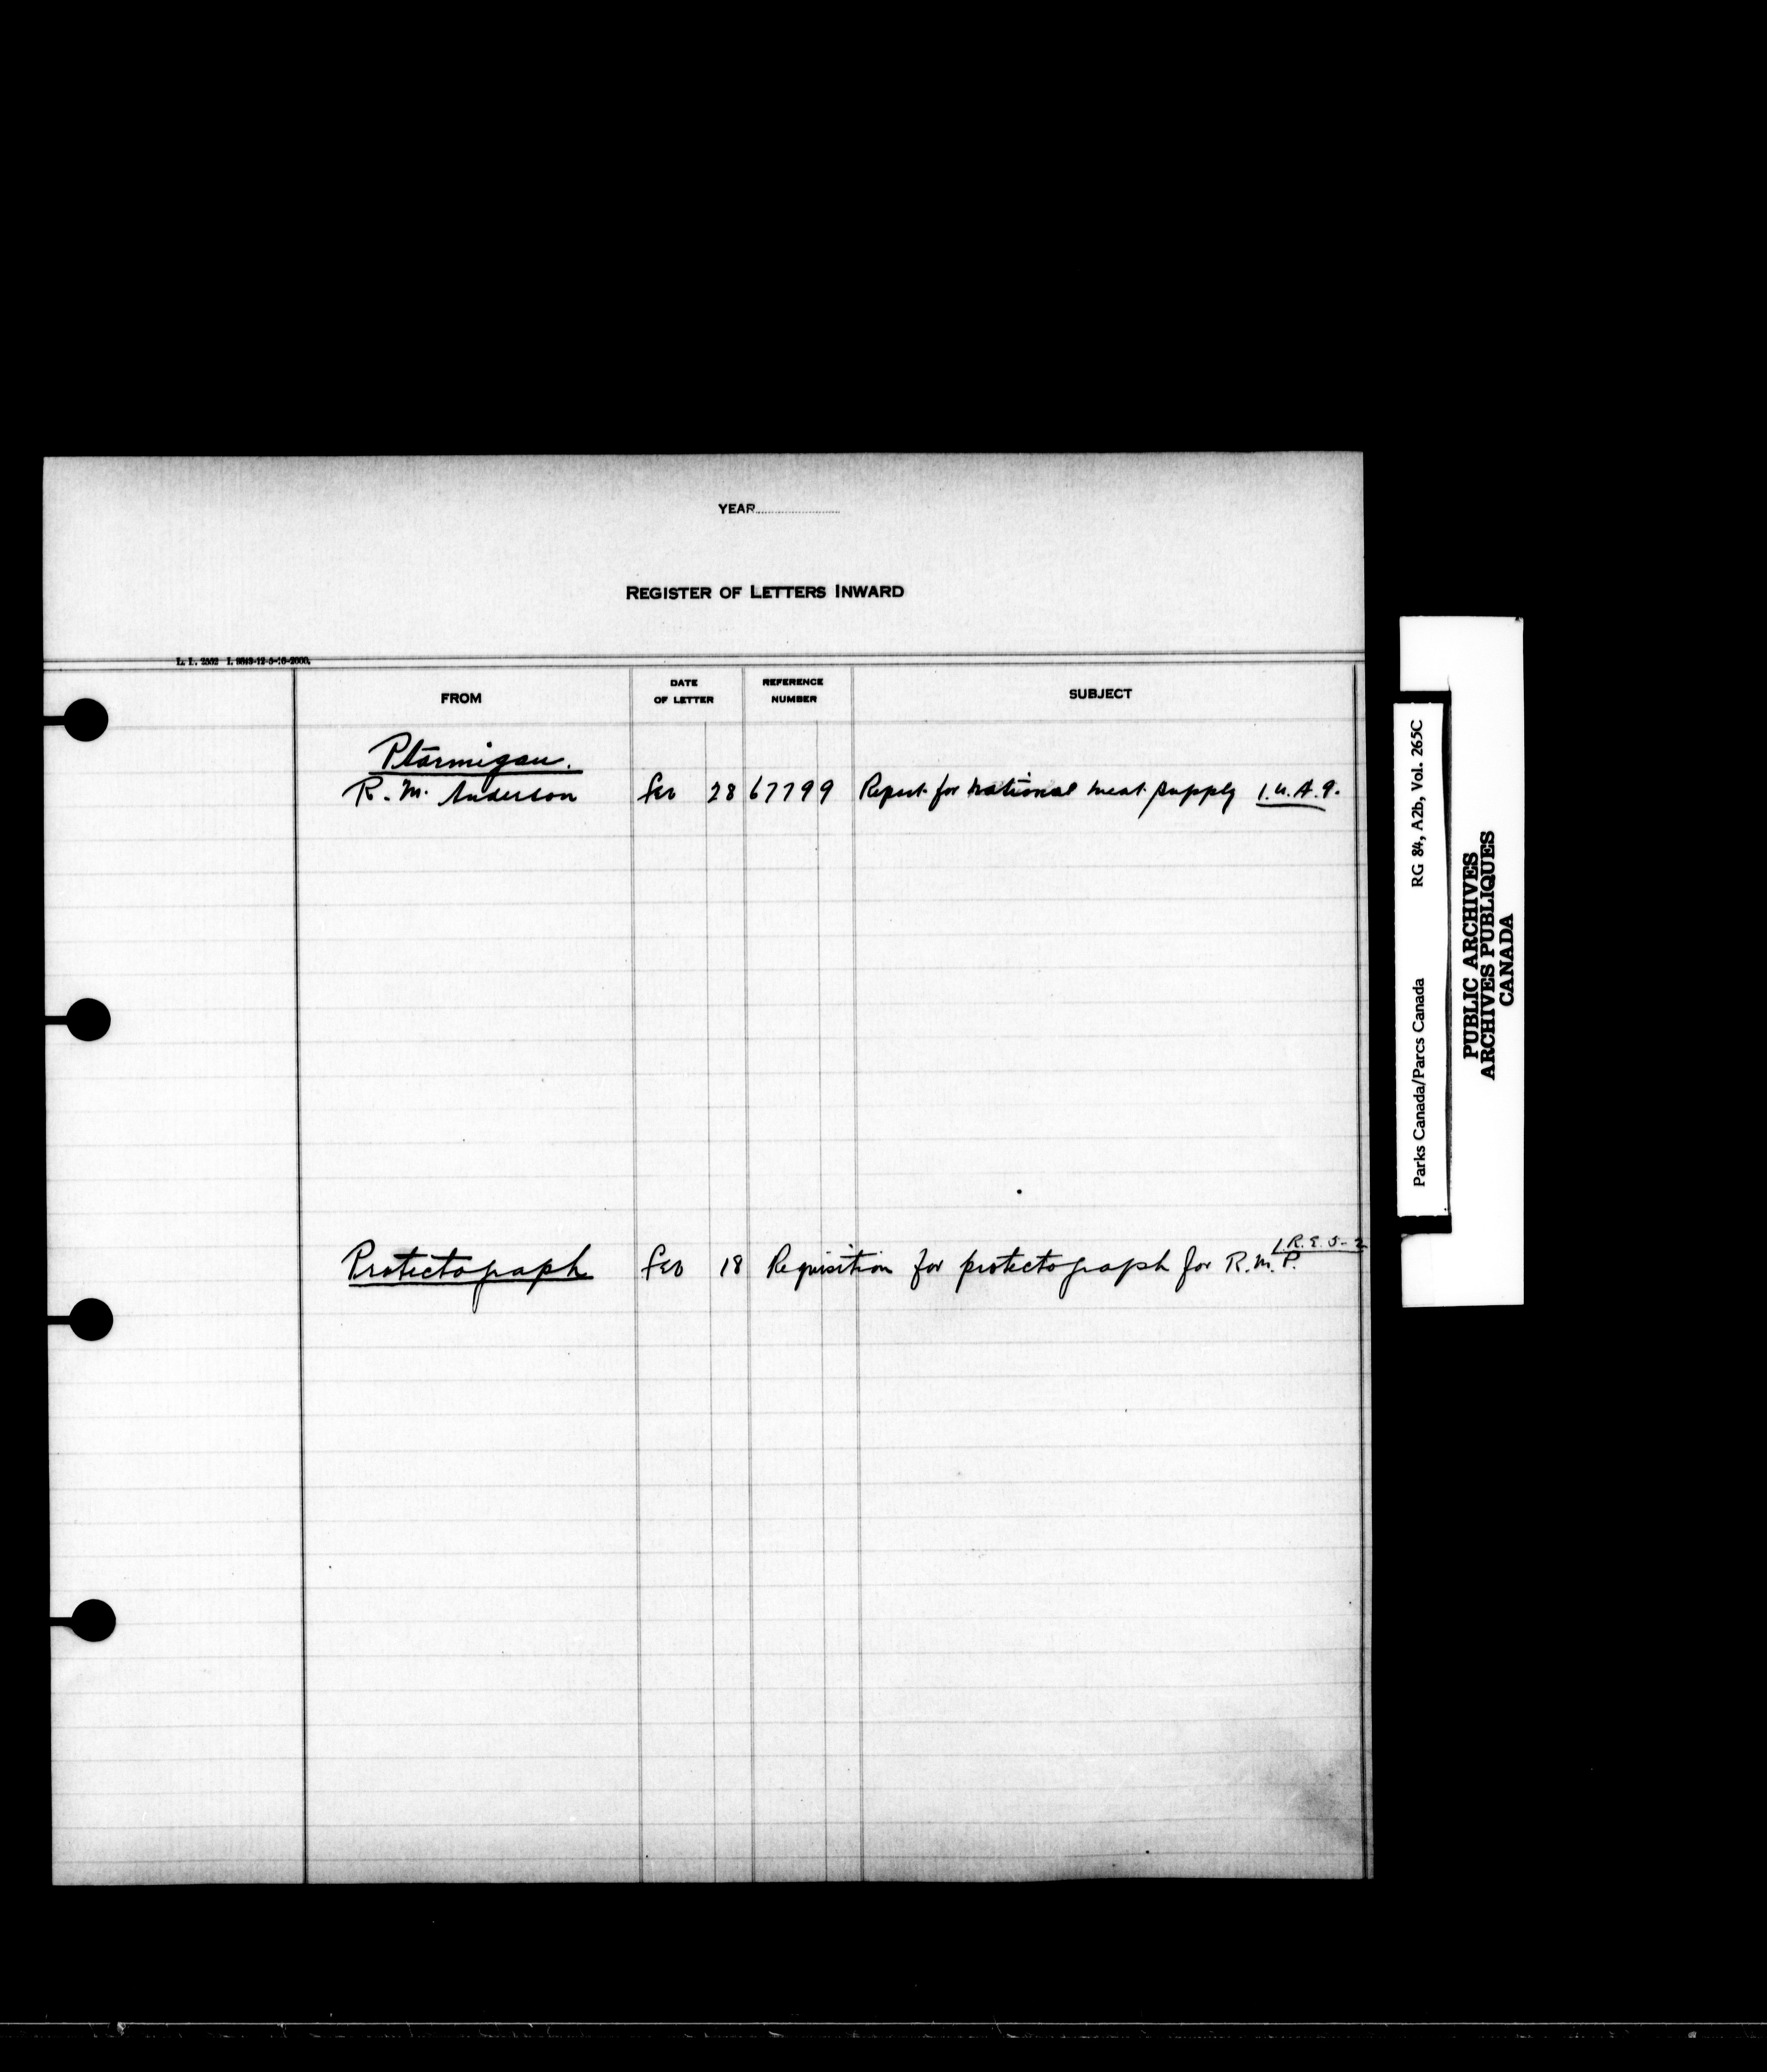 YEAR
REGISTER OF LETTERS INWARD
L. L. 2552
FROM DATE OF LETTER REFERENCE NUMBER SUBJECT
Ptarmigan.
R. M. Anderson Feb 28 67799 Report for national meat supply 1.U.A.9.
1.R.E.5-2
Protectograph Feb 18 Requisition for protectograph for R.M.P.
Parks Canada/Parcs Canada RG 84, A2b, Vol. 265C
PUBLIC ARCHIVES
ARCHIVES PUBLIQUES
CANADA